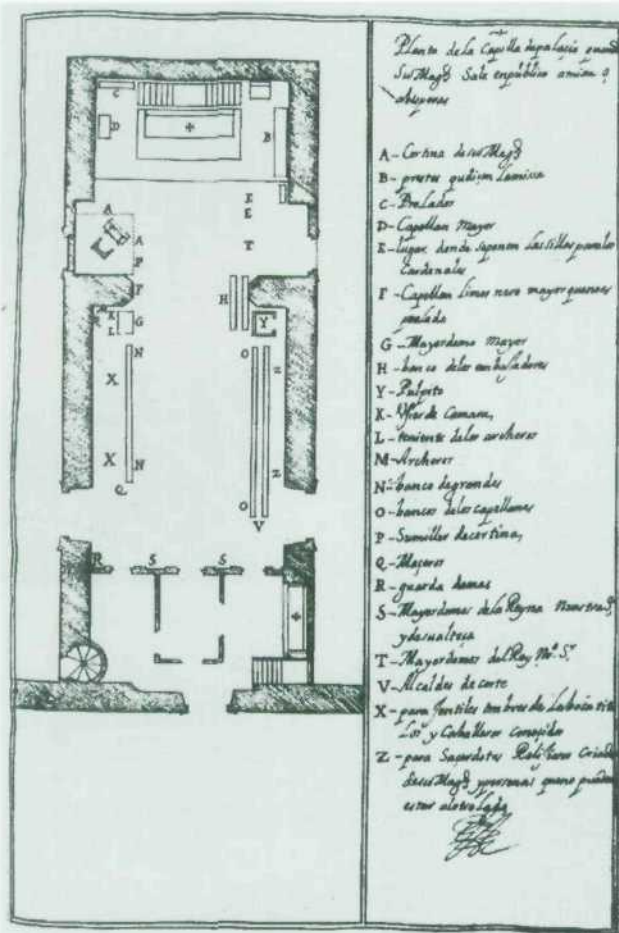 Planta de la Capilla de palacio quando
Su Magd Sale en publico a missa o
visperas
A - Cortina de su Magd
B - prestes que diçen la missa
C - Prelados
D - Capellan Mayor
E - lugar donde se ponen las sillas para los
Cardenales
F - Capellan limosnero mayor que no es
prelado
G - Mayordomo Mayor
H - banco de los embaxadores
Y - Pulpito
K - Vjier de Camara,
L - teniente de los archeros
M - Archeros
N - banco de grandes
O - bancos de los capellanes
P - Sumiller de cortina,
Q - Maçeros
R - guarda damas
S - Mayordomos de la Reyna Nuestra Sª
y de su alteça
T - Mayordomos del Rey Nº Sr
V - Alcaldes de corte
X - para Jentiles ombres de la boca
y Caballeros conoçidos
Z - para Saçerdotes Relijiosos Criados
de su Magd y personas que no pueden
estar al otro lado
C
D
B
A
A
P
E
E
T
F
H
K
L
G
Y
N
O
X
Z
X
N
Z
Q
O
V
R
S
S